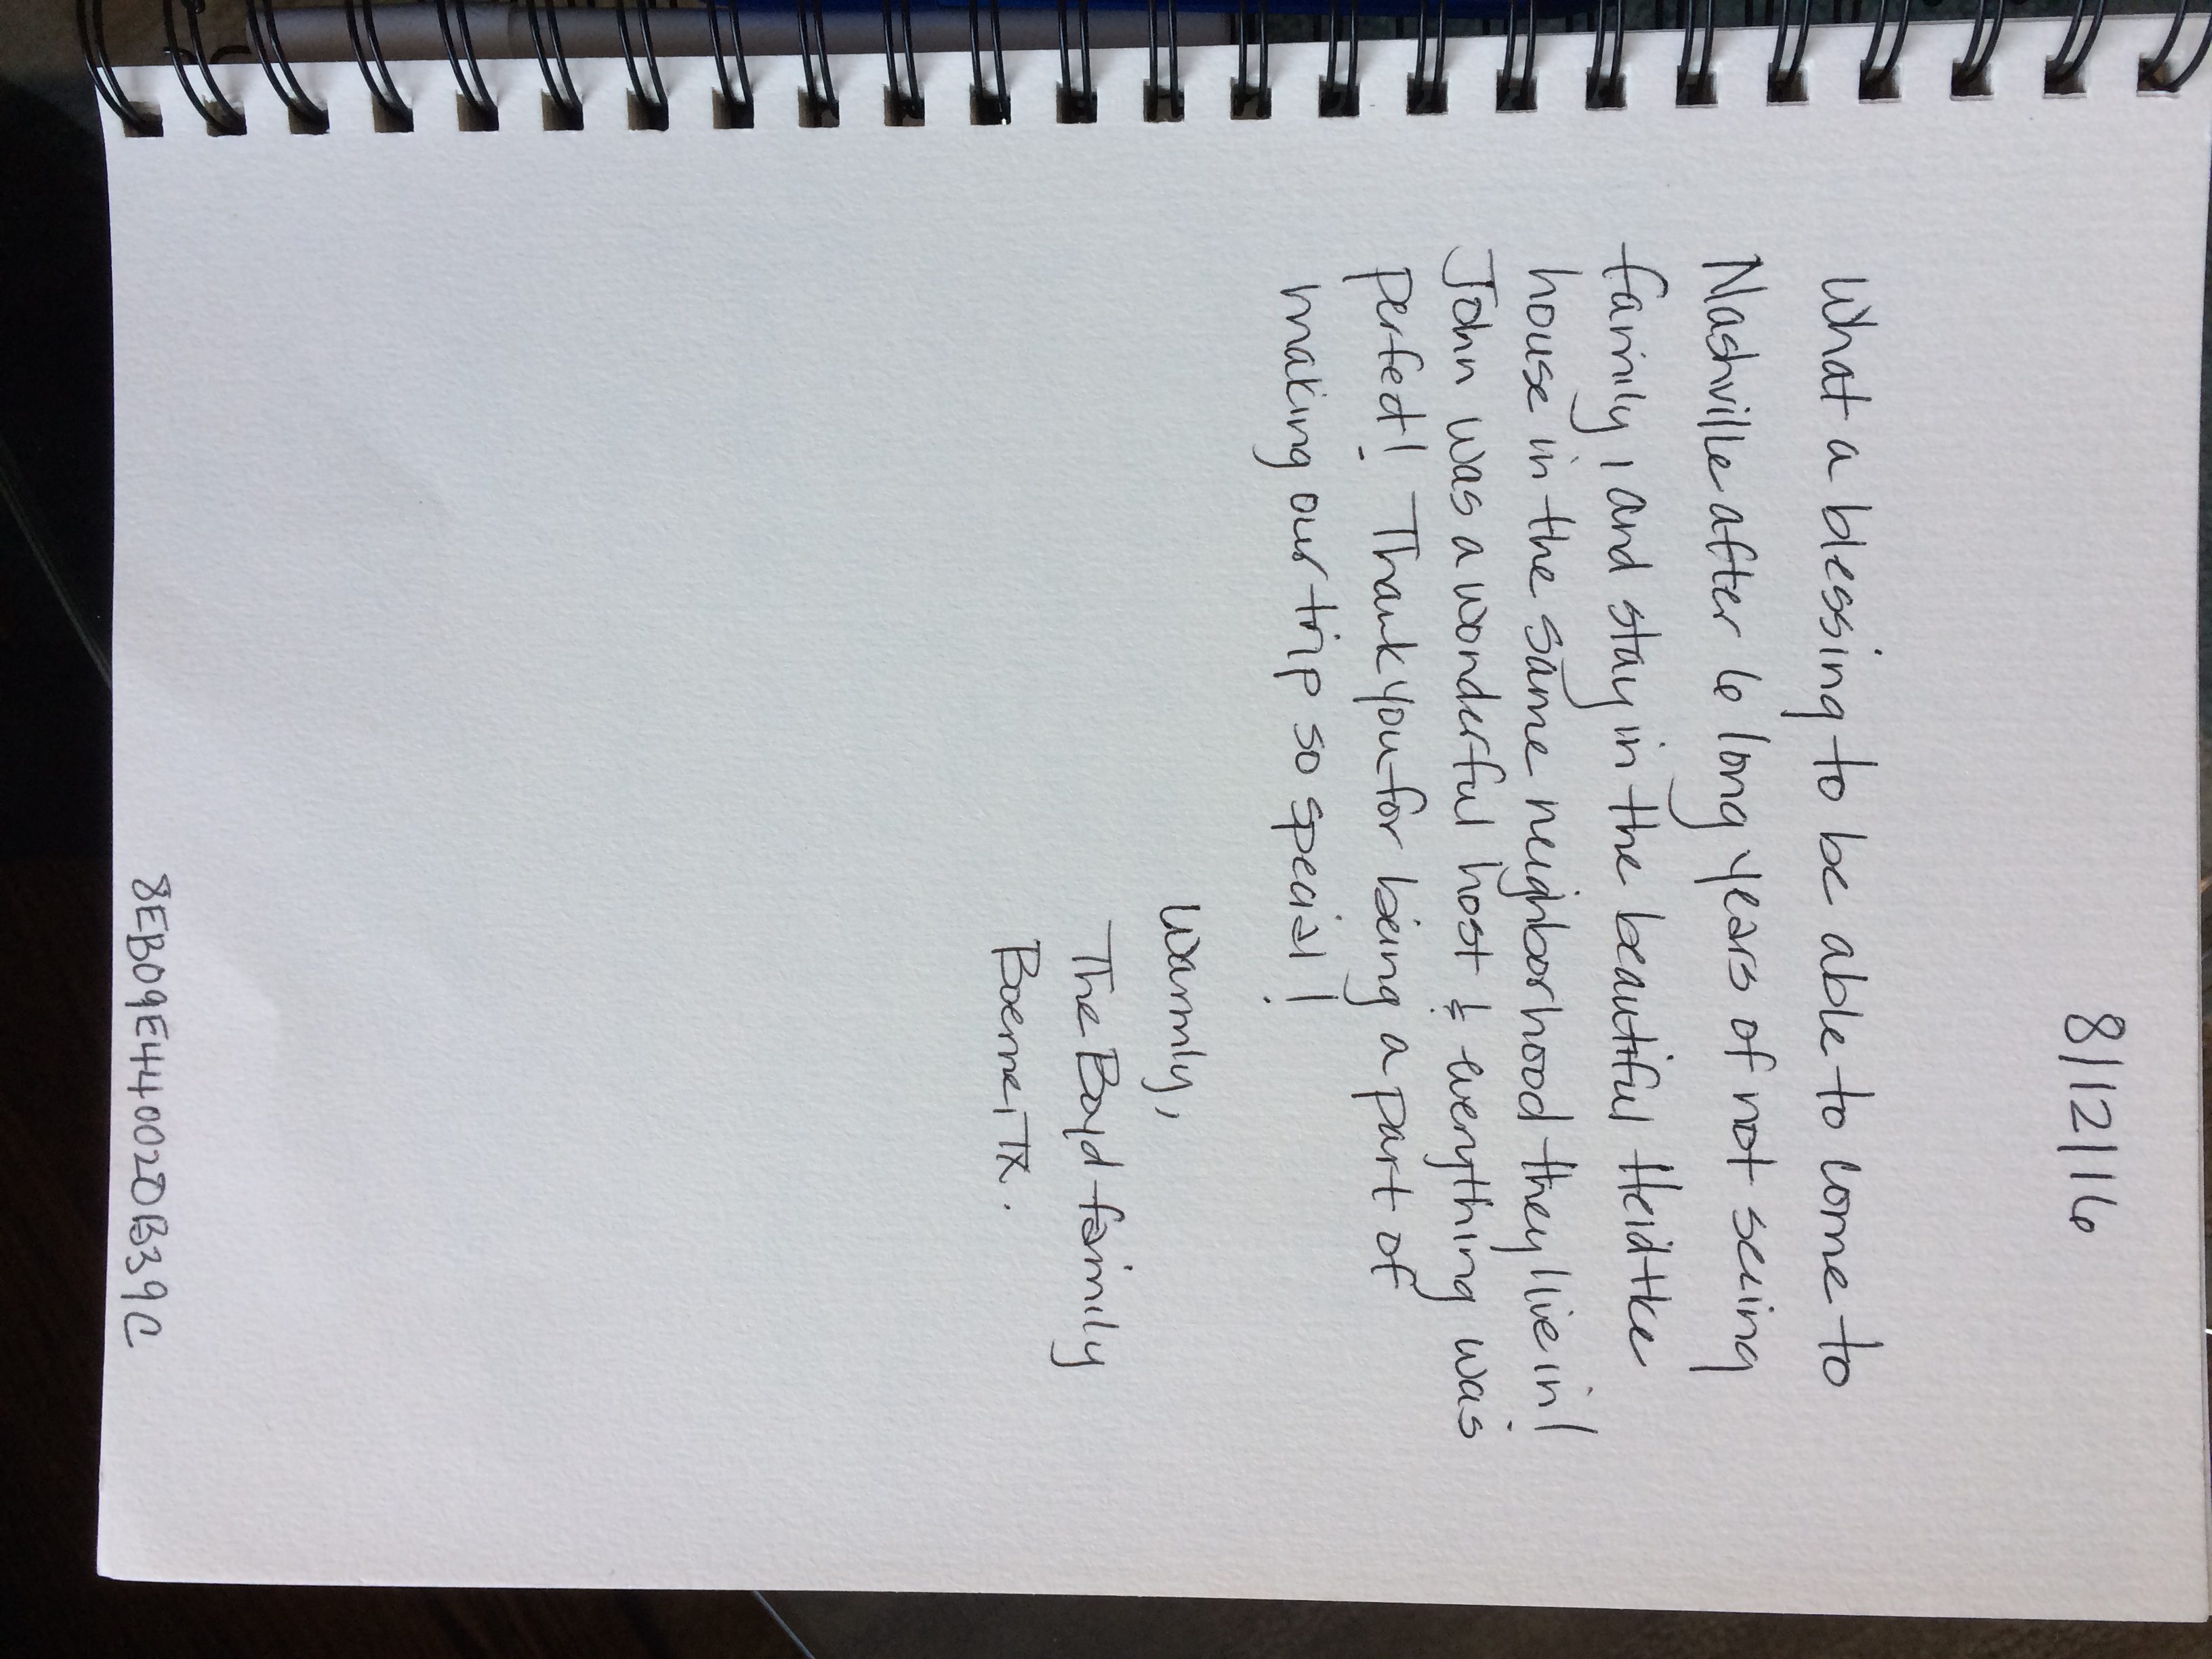 8/12/16
What a blessing to be able to come to
Nashville after 6 long years of not seeing
family, and stay in the beautiful Heidtke
house in the same neighborhood they live in!
John was a wonderful host & everything was
perfect! Thank you for being a part of
making our trip so special!
Warmly,
The Boyd family
Boerne, TX.
8EB09E44002DB39C